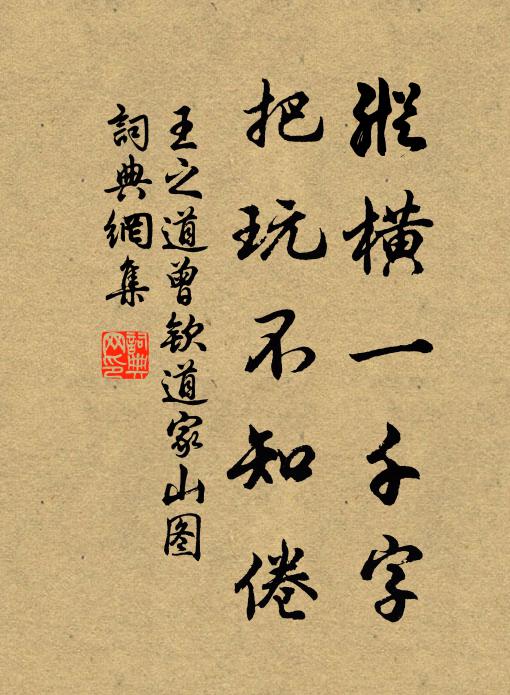 縱橫一千字
把玩不知倦
王之道曾欽道家山图
詞典網集
詞典網印